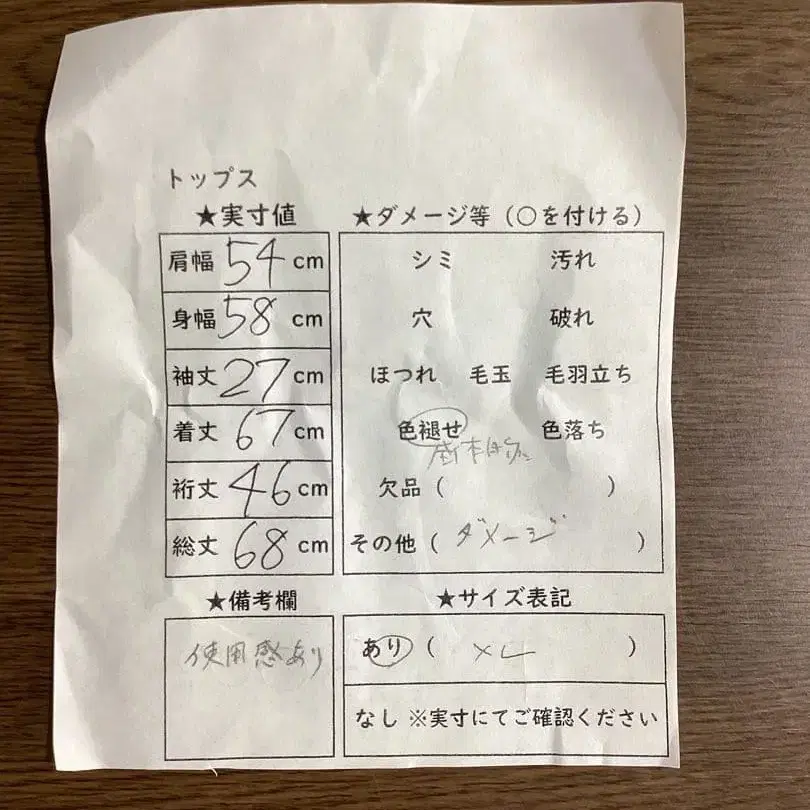 トップス
★実寸値
肩幅 54 cm
身幅 58 cm
袖丈 27 cm
着丈 67 cm
裄丈 46 cm
総丈 68 cm
★ダメージ等（○を付ける）
シミ 汚れ
穴 破れ
ほつれ 毛玉 毛羽立ち
色褪せ 色落ち
欠品（ ）
その他（ ダメージ ）
★備考欄
使用感あり
★サイズ表記
あり（ XL ）
なし ※実寸にてご確認ください